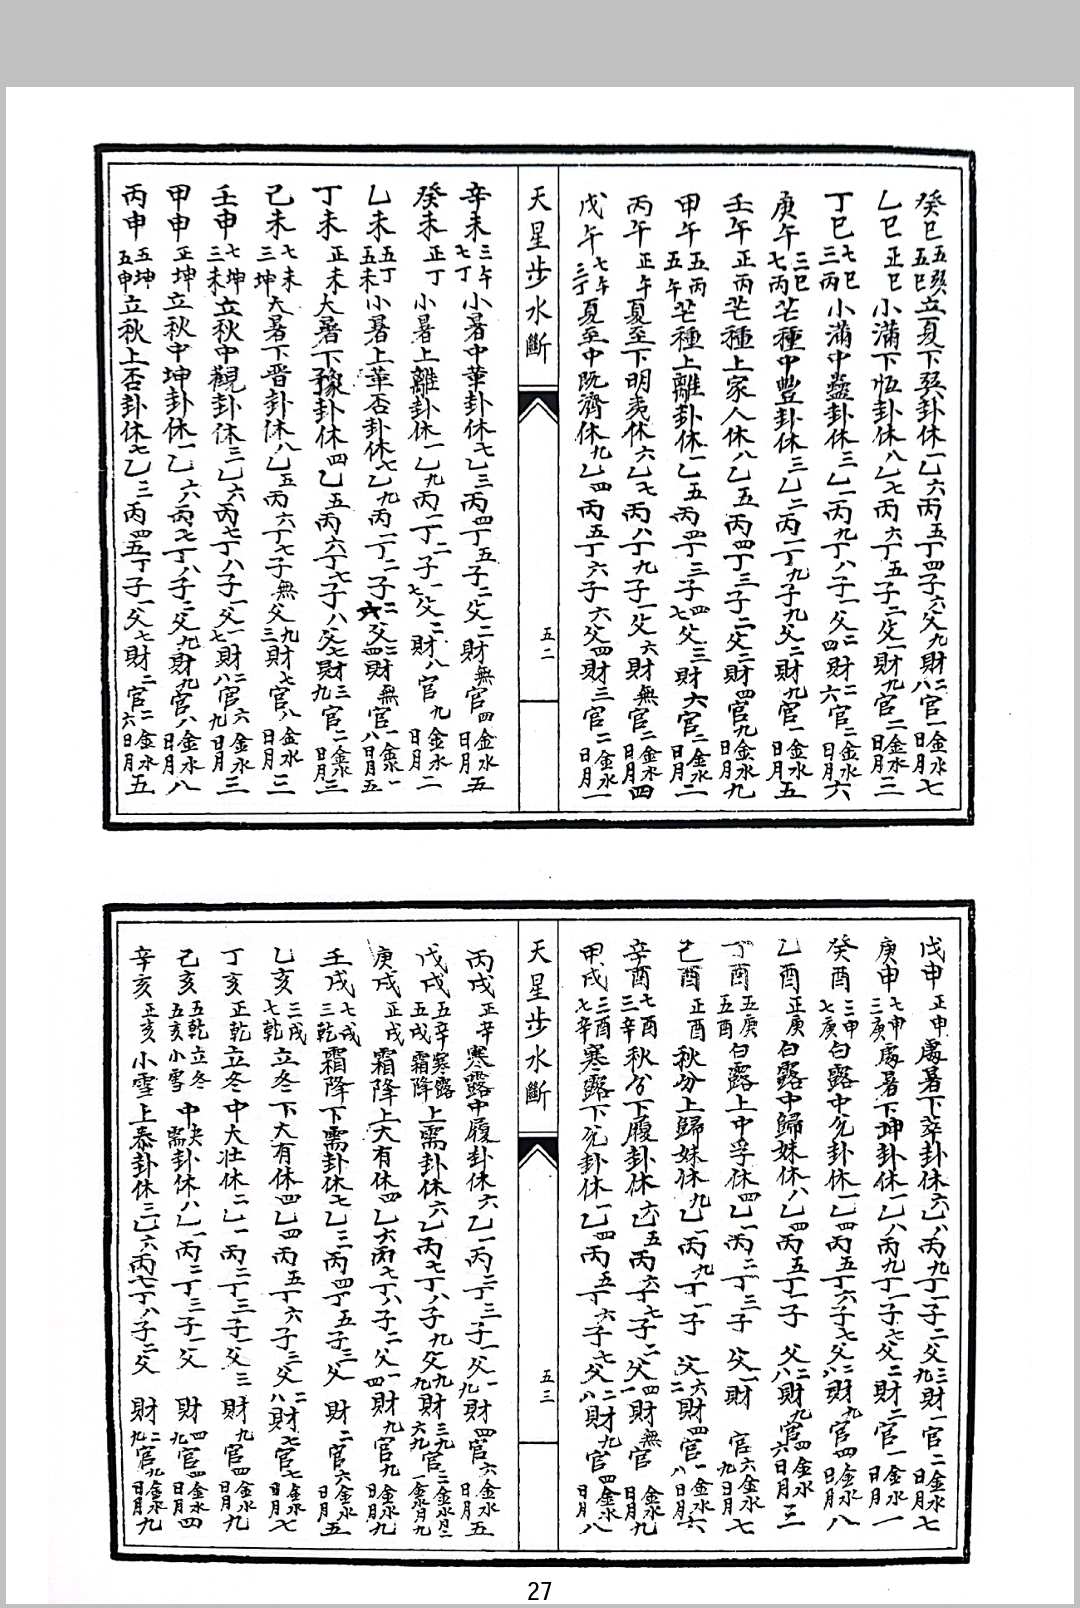 癸巳五癸五巳立夏下巽卦休一乙六丙五丁四子六父九財二八官一金水日月七
乙巳正巳小滿下恒卦休八乙七丙六丁五子二父一財九官二金水日月三
丁巳七巳三丙小滿中蠱卦休三乙一丙九丁八子一父二四財二六官二金水日月六
庚午二巳七丙芒種中豐卦休三乙二丙一丁九子九父二財九官一金水日月五
壬午正丙芒種上家人休八乙五丙四丁三子二父二財四官九金水日月九
甲午五丙五午芒種上離卦休一乙五丙四丁三子四七父三財六官二金水日月二
丙午正午夏至下明夷休六乙七丙八丁九子一父六財無官二金水日月四
戊午七午三丁夏至中既濟休九乙四丙五丁六子六父四財三官二金水日月一
天星步水斷
五二
辛未三午七丁小暑中革卦休七乙三丙四丁五子二父二財無官四金水日月五
癸未正丁小暑上離卦休一乙九丙一丁二子一七父二財八官九金水日月二
乙未五丁五未小暑上革否卦休七乙九丙一丁二子二六父二四財無官一八金水日月一五
丁未正未大暑下豫卦休四乙五丙六丁七子八父七財三九官二金水日月三
己未七未三坤大暑下晋卦休八乙五丙六丁七子無父九三財七官八金水日月三
壬申七坤三未立秋中觀卦休三乙六丙七丁八子一父一七財二八官六九金水日月三
甲申正坤立秋中坤卦休一乙六丙七丁八子二父九財九官八金水日月八
丙申五坤五申立秋上否卦休七乙三丙四五丁子一父七財二官二六金水日月五
戊申正申處暑下萃卦休六乙八丙九丁一子二父三九財一官二金水日月七
庚申七申三庚處暑下坤卦休一乙八丙九丁一子七父二財二官一金水日月一
癸酉二申七庚白露中兌卦休一乙四丙五丁六子七父二八財九官四金水日月八
乙酉正庚白露中歸妹休八乙四丙五丁一子父二八財九官四六金水日月三
丁酉五庚五酉白露上中孚休四乙一丙二丁三子父一財官六九金水日月七
己酉正酉秋分上歸妹休九乙一丙九丁一子父六二財四官一八金水日月六
辛酉七酉三辛秋分下履卦休六乙五丙六子七子二父四一財無官金水日月九
甲戌二酉七辛寒露下兌卦休一乙四丙五丁六子七父二八財九官四金水日月八
天星步水斷
五三
丙戌正辛寒露中履卦休六乙一丙二丁三子一父一九財四官六金水日月五
戊戌五辛五戌寒露霜降上需卦休六乙丙七丁八子九父九九財三九六九官二一金水日月二九
庚戌正戌霜降上大有休四乙六丙七丁八子二父一四財九官九金水日月九
壬戌七戌三乾霜降下需卦休七乙三丙四丁五子三父財二官六金水日月五
乙亥二戌七乾立冬下大有休四乙四丙五丁六子三父八財二七官七金水日月七
丁亥正乾立冬中大壯休二乙一丙二丁三子一父三財九官四金水日月九
己亥五乾五亥立冬小雪中夬需卦休八乙一丙二丁三子一父財四九官四金水日月四
辛亥正亥小雪上泰卦休三乙六丙七丁八子二父財二九官九金水日月九
27